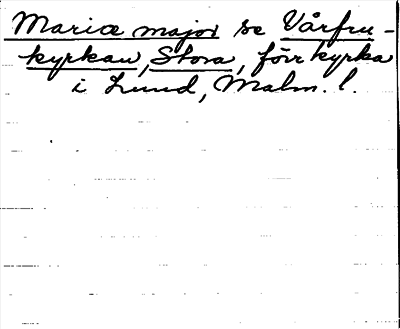 Mariæ major se Vårfru-
kyrkan, Stora, förr kyrka
i Lund, Malm. l.